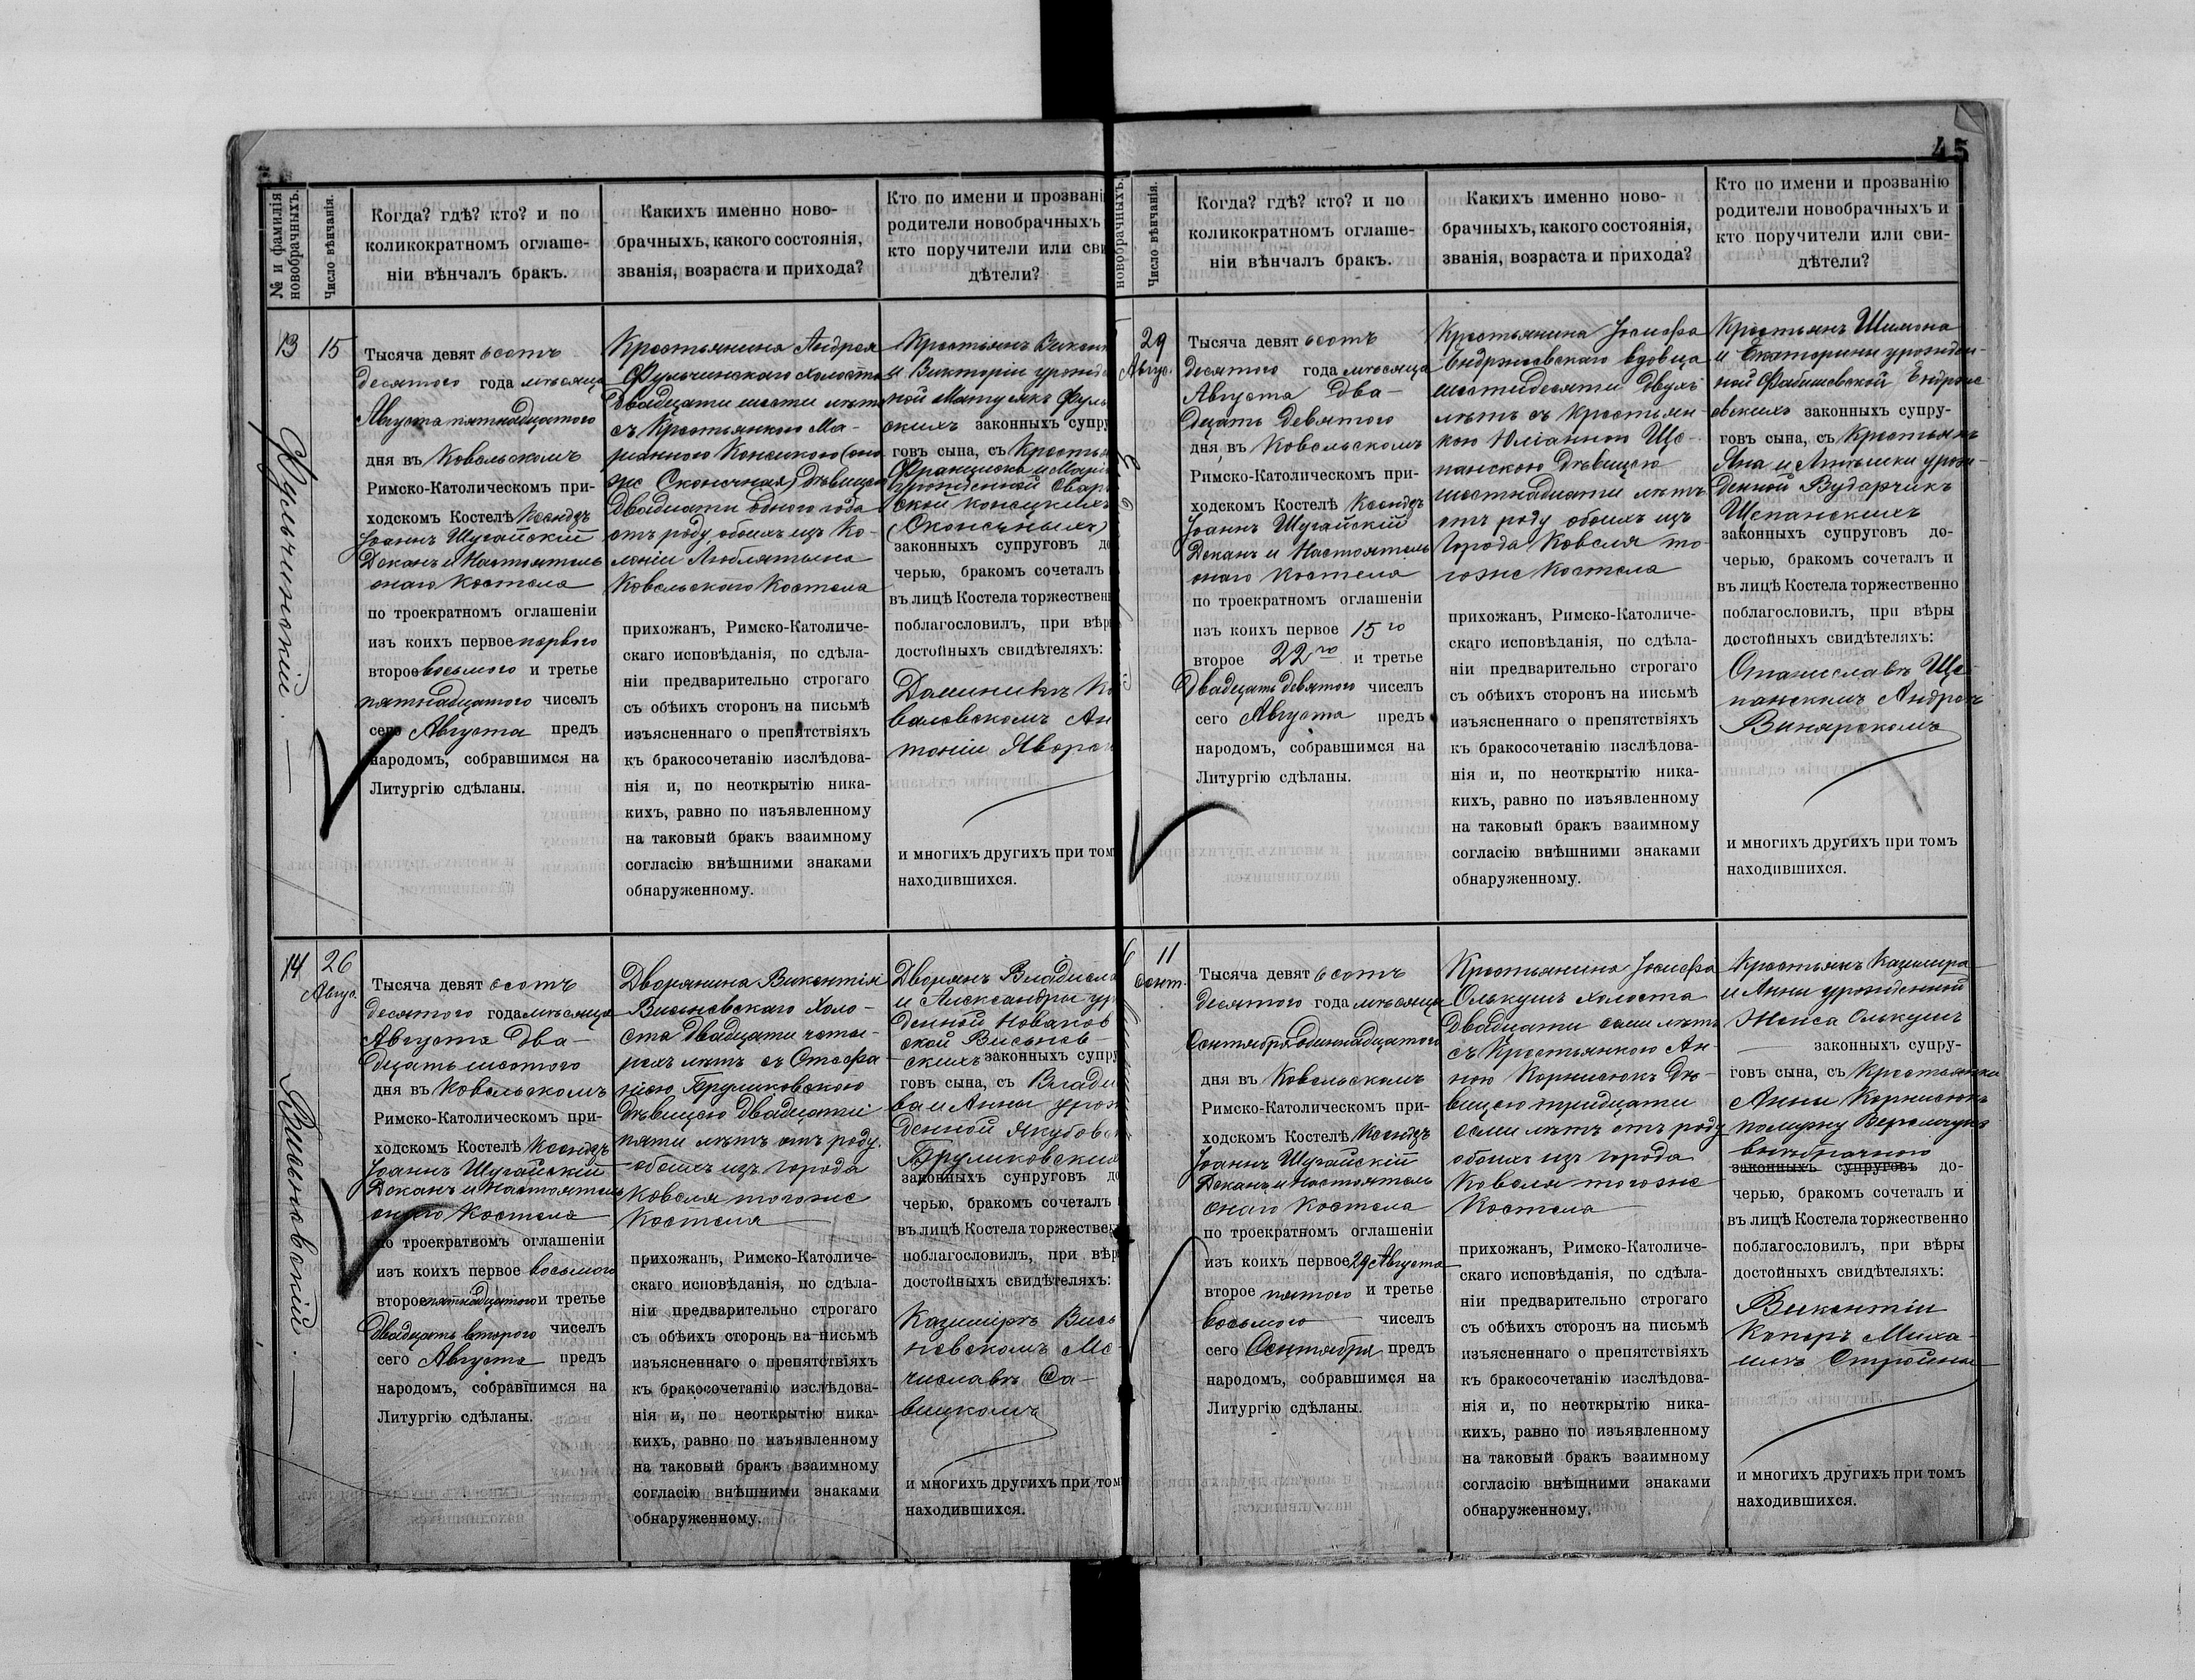 45
№ и фамилія
новобрачныхъ.
Число вѣнчанія.
Когда? гдѣ? кто? и по
коликократномъ оглаше-
ніи вѣнчалъ бракъ.
Какихъ именно ново-
брачныхъ, какого состоянія,
званія, возраста и прихода?
Кто по имени и прозвані
родители новобрачныхъ
кто поручители или сви
дѣтели?
13
Фульчинскій.
15
Тысяча девятьсотъ
десятого года мѣсяца
Августа пятнадцатого
дня въ Ковельскомъ
Римско-Католическомъ при-
ходскомъ Костелѣ Ксендзъ
Іоаннъ Шугайскій
Деканъ и Настоятель
онаго Костела
по троекратномъ оглашеніи
изъ коихъ первое перваго
второе восьмого и третье
пятнадцатого чиселъ
сего Августа предъ
народомъ, собравшимся на
Литургію сдѣланы.
Крестьянина Андрея
Фульчинскаго холоста
двадцати шести лѣтъ
съ Крестьянкою Ма-
рианною Консикою (она
же Сконечная) дѣвицею
двадцати одного года
отъ роду, обоихъ изъ Ко-
лоніи Люблятына
Ковельскаго Костела
прихожанъ, Римско-Католиче-
скаго исповѣданія, по сдѣла-
ніи предварительно строгаго
съ обѣихъ сторонъ на письмѣ
изъясненнаго о препятствіяхъ
къ бракосочетанію изслѣдова-
нія и, по неоткрытію ника-
кихъ, равно по изъявленному
на таковый бракъ взаимному
согласію внѣшними знаками
обнаруженному.
Крестьянъ Викент
и Викторіи урожде
ной Матусякъ Фуль
скихъ законныхъ супру
говъ сына, съ Крестья
Францишка и Маріи
урожденной Свар
ской
законныхъ супруговъ до
черью, бракомъ сочеталъ
въ лицѣ Костела торжественн
поблагословилъ, при вѣр
достойныхъ свидѣтеляхъ:
Доминикъ Ко
валевскомъ Ан
тоніи Яворск
и многихъ другихъ при том
находившихся.
14
Висьневскій.
26
Авгус.
Тысяча девятьсотъ
десятого года мѣсяца
Августа два-
дцать шестого
дня въ Ковельскомъ
Римско-Католическомъ при-
ходскомъ Костелѣ Ксендзъ
Іоаннъ Шугайскій
Деканъ и Настоятель
онаго Костела
по троекратномъ оглашеніи
изъ коихъ первое восьмого
второе пятнадцатого и третье
двадцать второго чиселъ
сего Августа предъ
народомъ, собравшимся на
Литургію сдѣланы.
Дворянина Викентія
Висьневскаго холо-
ста двадцати четы-
рехъ лѣтъ съ Стефа-
ніею Бруликовскою
дѣвицею двадцати
пяти лѣтъ отъ роду.
обоихъ изъ города
Ковеля тогоже
Костела
прихожанъ, Римско-Католиче-
скаго исповѣданія, по сдѣла-
ніи предварительно строгаго
съ обѣихъ сторонъ на письмѣ
изъясненнаго о препятствіяхъ
къ бракосочетанію изслѣдова-
нія и, по неоткрытію ника-
кихъ, равно по изъявленному
на таковый бракъ взаимному
согласію внѣшними знаками
обнаруженному.
Дворянъ Владисла
и Александры ур
денной Новаков
ской Висьнев-
скихъ законныхъ супру
говъ сына, съ Влади
ва и Анны урож
денной Якубов
Бруликовских
законныхъ супруговъ до
черью, бракомъ сочеталъ
въ лицѣ Костела торжествен
поблагословилъ, при вѣр
достойныхъ свидѣтеляхъ:
Казимірѣ Вись
невскомъ Ме-
числавѣ Са-
вицкомъ
и многихъ другихъ при том
находившихся.
новобрачныхъ.
Число вѣнчанія.
Когда? гдѣ? кто? и по
коликократномъ оглаше-
ніи вѣнчалъ бракъ.
Какихъ именно ново-
брачныхъ, какого состоянія,
званія, возраста и прихода?
Кто по имени и прозванію
родители новобрачныхъ и
кто поручители или сви-
дѣтели?
29
Авгус.
Тысяча девятьсотъ
десятого года мѣсяца
Августа два-
дцать девятого
дня въ Ковельскомъ
Римско-Католическомъ при-
ходскомъ Костелѣ Ксендзъ
Іоаннъ Шугайскій
Деканъ и Настоятель
онаго Костела
по троекратномъ оглашеніи
изъ коихъ первое 15го
второе 22го и третье
двадцать девятого чиселъ
сего Августа предъ
народомъ, собравшимся на
Литургію сдѣланы.
Крестьянина Іосифа
Ендржеевскаго вдовца
шестидесяти двухъ
лѣтъ съ Крестьян-
кою Юліанною Ще-
панскою дѣвицею
шестнадцати лѣтъ
отъ роду обоихъ изъ
города Ковеля то-
гоже Костела
прихожанъ, Римско-Католиче-
скаго исповѣданія, по сдѣла-
ніи предварительно строгаго
съ обѣихъ сторонъ на письмѣ
изъясненнаго о препятствіяхъ
къ бракосочетанію изслѣдова-
нія и, по неоткрытію ника-
кихъ, равно по изъявленному
на таковый бракъ взаимному
согласію внѣшними знаками
обнаруженному.
Крестьянъ Шимона
и Екатерины урожден-
ной Фабишевской Ендрже-
евскихъ законныхъ супру-
говъ сына, съ Крестьянъ
Яна и Анѣльки урож-
денной Вударчикъ
Щепанскихъ
законныхъ супруговъ до-
черью, бракомъ сочеталъ и
въ лицѣ Костела торжественно
поблагословилъ, при вѣры
достойныхъ свидѣтеляхъ:
Станиславѣ Ще-
панскомъ Андреѣ
Винярскомъ
и многихъ другихъ при томъ
находившихся.
11
Сент.
Тысяча девятьсотъ
десятого года мѣсяца
Сентября одиннадцатого
дня въ Ковельскомъ
Римско-Католическомъ при-
ходскомъ Костелѣ Ксендзъ
Іоаннъ Шугайскій
Деканъ и Настоятель
онаго Костела
по троекратномъ оглашеніи
изъ коихъ первое 29 Августа
второе пятого и третье
восьмого чиселъ
сего Сентября предъ
народомъ, собравшимся на
Литургію сдѣланы.
Крестьянина Іосифа
Олькушъ холоста
двадцати семи лѣтъ
съ Крестьянкою Ан-
ною Корнисюкъ дѣ-
вицею тридцати
семи лѣтъ отъ роду
обоихъ изъ города
Ковеля тогоже
Костела
прихожанъ, Римско-Католиче-
скаго исповѣданія, по сдѣла-
ніи предварительно строгаго
съ обѣихъ сторонъ на письмѣ
изъясненнаго о препятствіяхъ
къ бракосочетанію изслѣдова-
нія и, по неоткрытію ника-
кихъ, равно по изъявленному
на таковый бракъ взаимному
согласію внѣшними знаками
обнаруженному.
Крестьянъ Казимира
и Анны урожденной
Жепса Олькушъ
законныхъ супру-
говъ сына, съ Крестьянки
Анны Корнисюкъ
помужу
внѣбрачною
законныхъ супруговъ до-
черью, бракомъ сочеталъ и
въ лицѣ Костела торжественно
поблагословилъ, при вѣры
достойныхъ свидѣтеляхъ:
Викентіи
Коперъ Миха-
илѣ
и многихъ другихъ при томъ
находившихся.